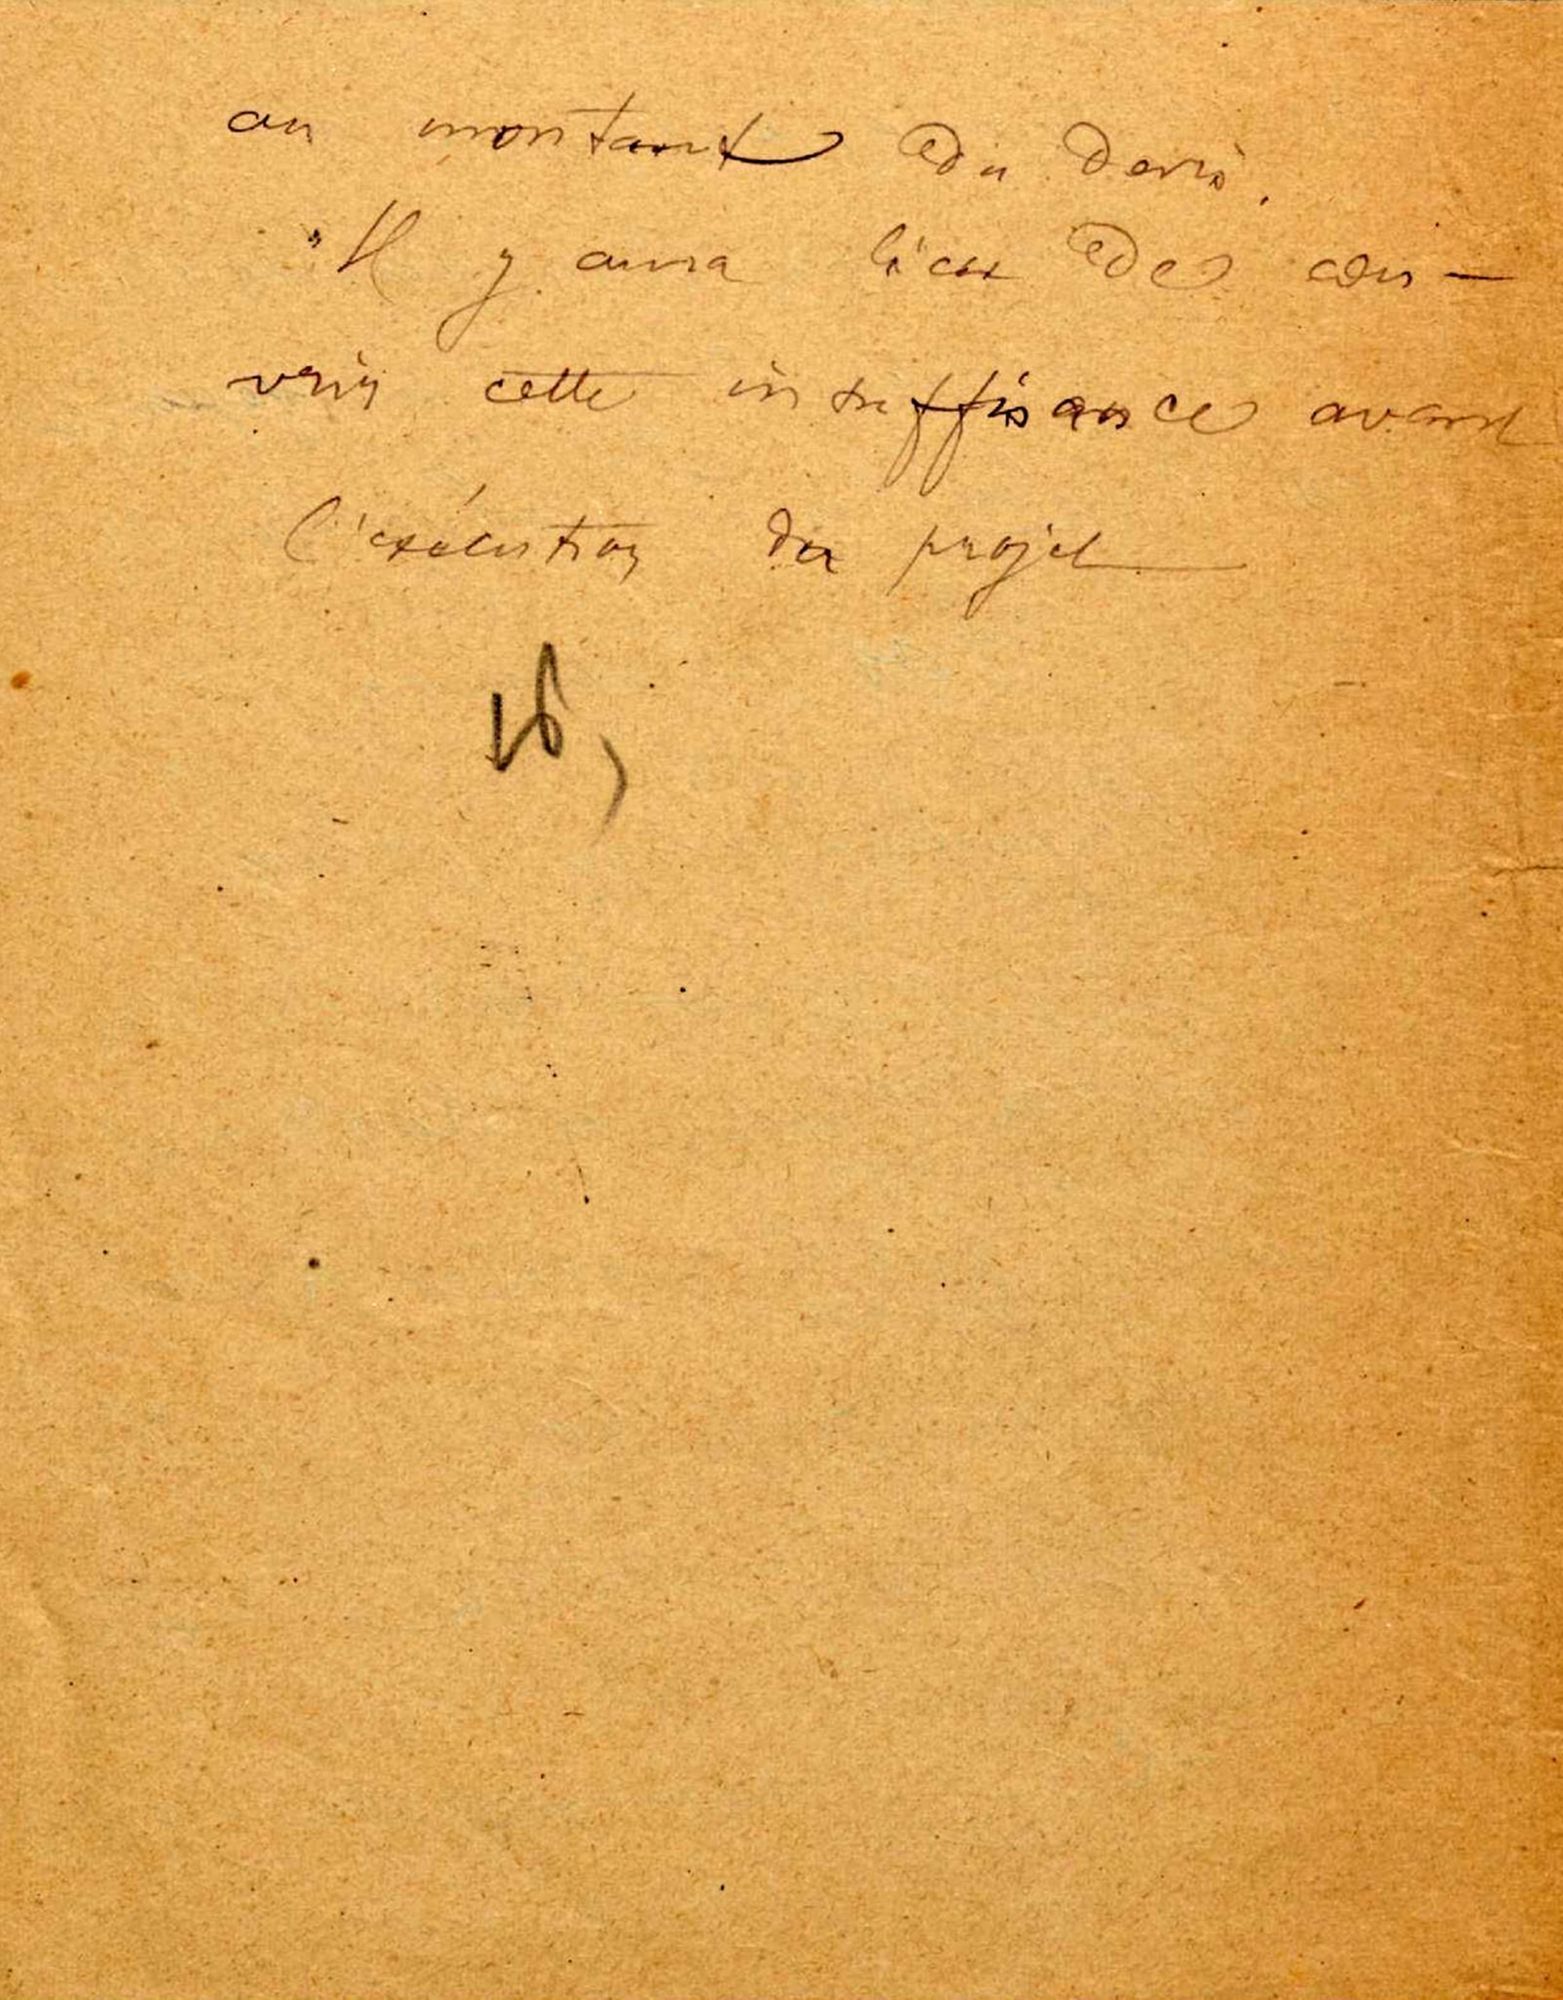 au montant du devis.
Il y aura lieu de cou-
vrir cette insuffisance avant
l'exécution du projet